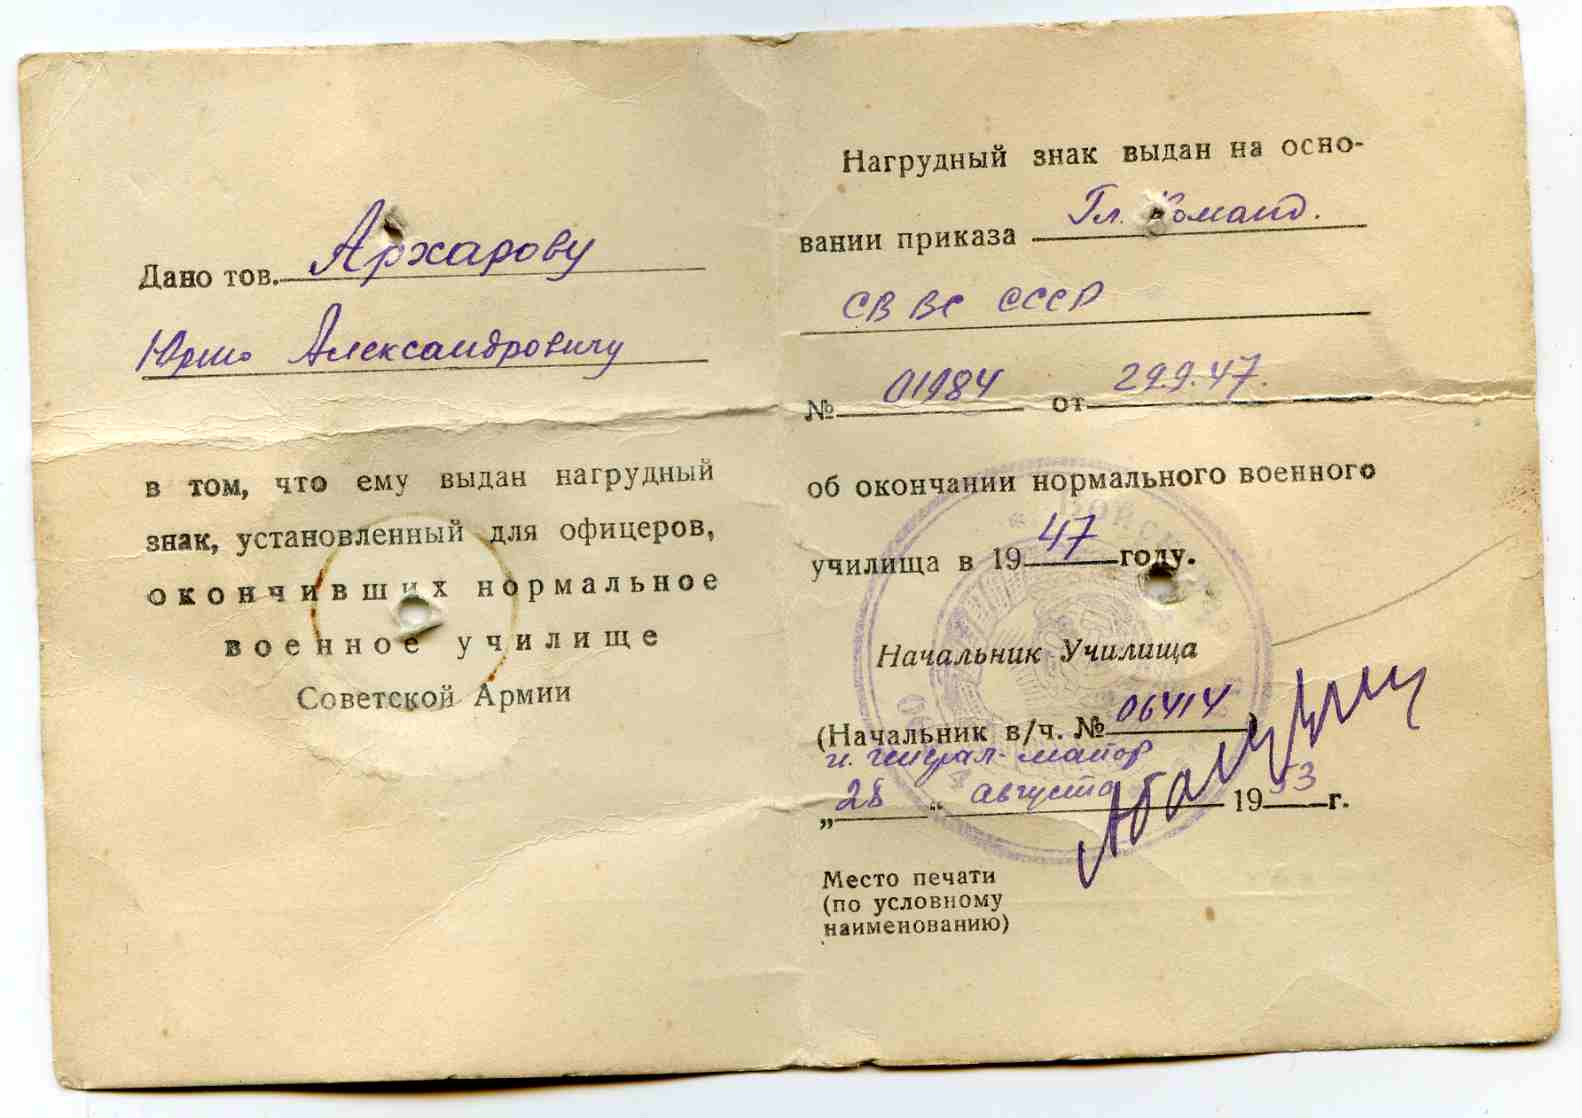 Дано тов. Архарову
Юрию Александровичу
в том, что ему выдан нагрудный
знак, установленный для офицеров,
окончивших нормальное
военное училище
Советской Армии
Нагрудный знак выдан на осно-
вании приказа Гл. Команд.
СВ ВС СССР
№ 01984 от 29.9.47.
об окончании нормального военного
училища в 1947 году.
Начальник Училища
(Начальник в/ч. № 06414
генерал-майор
„28" августа 1953 г.
Место печати
(по условному
наименованию)